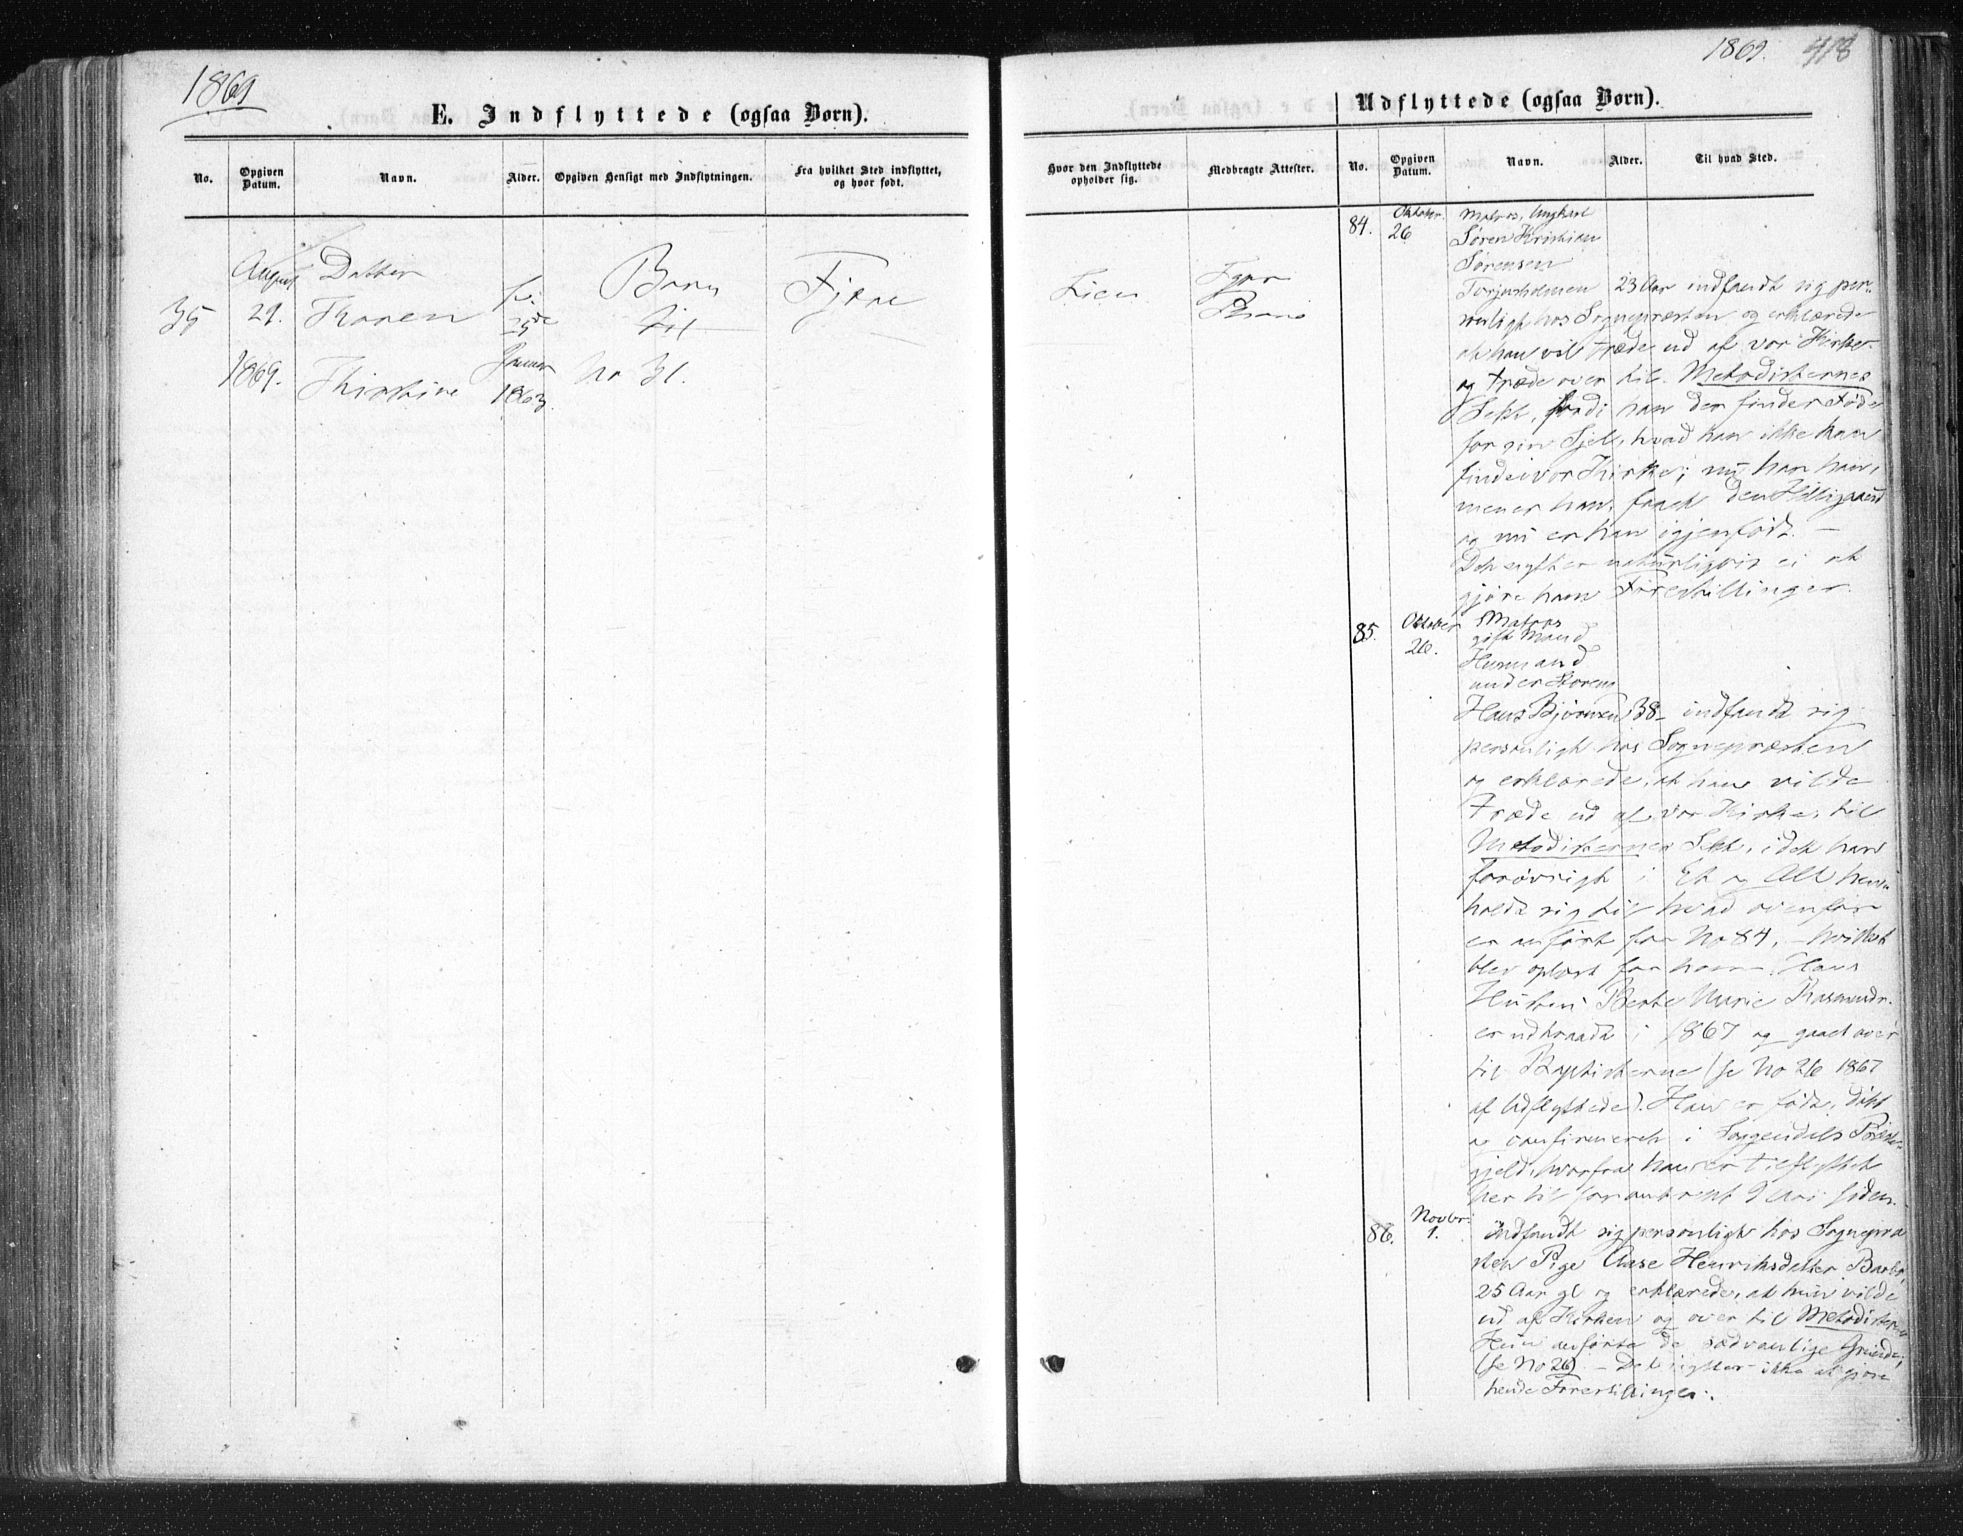 1869
E. Indflyttede (ogsaa Børn).
No.
Opgiven Datum.
Navn.
Alder.
Opgiven Hensigt med Indflytningen.
Fra hvilket Sted indflyttet, og hvor født.
35
August
29.
1869.
Datter
Karen
Kirstine
Januar
1863.
Barn
til
No 31.
Fjære
1869. 413
Udflyttede (ogsaa Børn).
Hvor den Indflyttede opholder sig.
Medbragte Attester.
No.
Opgiven Datum.
Navn.
Alder.
Til hvad Sted.
Lien
84.
Oktober.
26
Matros, Ungkarl
Søren Kristian
Sørensen
Torjusholmen 23 Aar indfandt sig per-
sonligt hos Sognepræsten og erklærede
at han vil træde ud af vor Kirke
og træde over til Metodisternes
Sekt, fordi han der finder Føde
for sin Sjel, hvad han ikke kan
finde i vor Kirke; nu har han,
mener han, faaet den Helligaand
og nu er han igjenfødt. —
Det nytter naturligvis ei at
gjøre ham Forestillinger.
85.
Oktober
26.
Matros
gift Mand
Huusmand
under
Hans Bjørnsen, 38 - indfandt sig
personligt hos Sognepræsten
og erklærede, at han vilde
træde ud af vor Kirke, til
Metodisternes Sekt, idet han
forøvrigt i Et og Alt hen-
holdt sig til hvad ovenfor
er anført for No 84, — hvilket
blev oplæst for ham. Hans
Hustru Berte Marie Rasmusdr.
er udtraadt i 1867 og gaaet over
til Baptisterne (se No 26 1867
af Udflyttede). Han er født, døbt
og confirmeret i Soggendals Præste-
gjeld, hvorfra han er tilflyttet
her til for omtrent 9 Aar siden.
86.
Novbr.
1.
Indfandt sig personligt hos Sognepræ
sten Pige Aase Henriksdatter Barbo,
25 Aar gl og erklærede, at hun vilde
ud af Kirken og over til Metodisterne
Hun anførte de sædvanlige Grunde,
(se No 26). — Det nytter ikke at gjøre
hende Forestillinger.